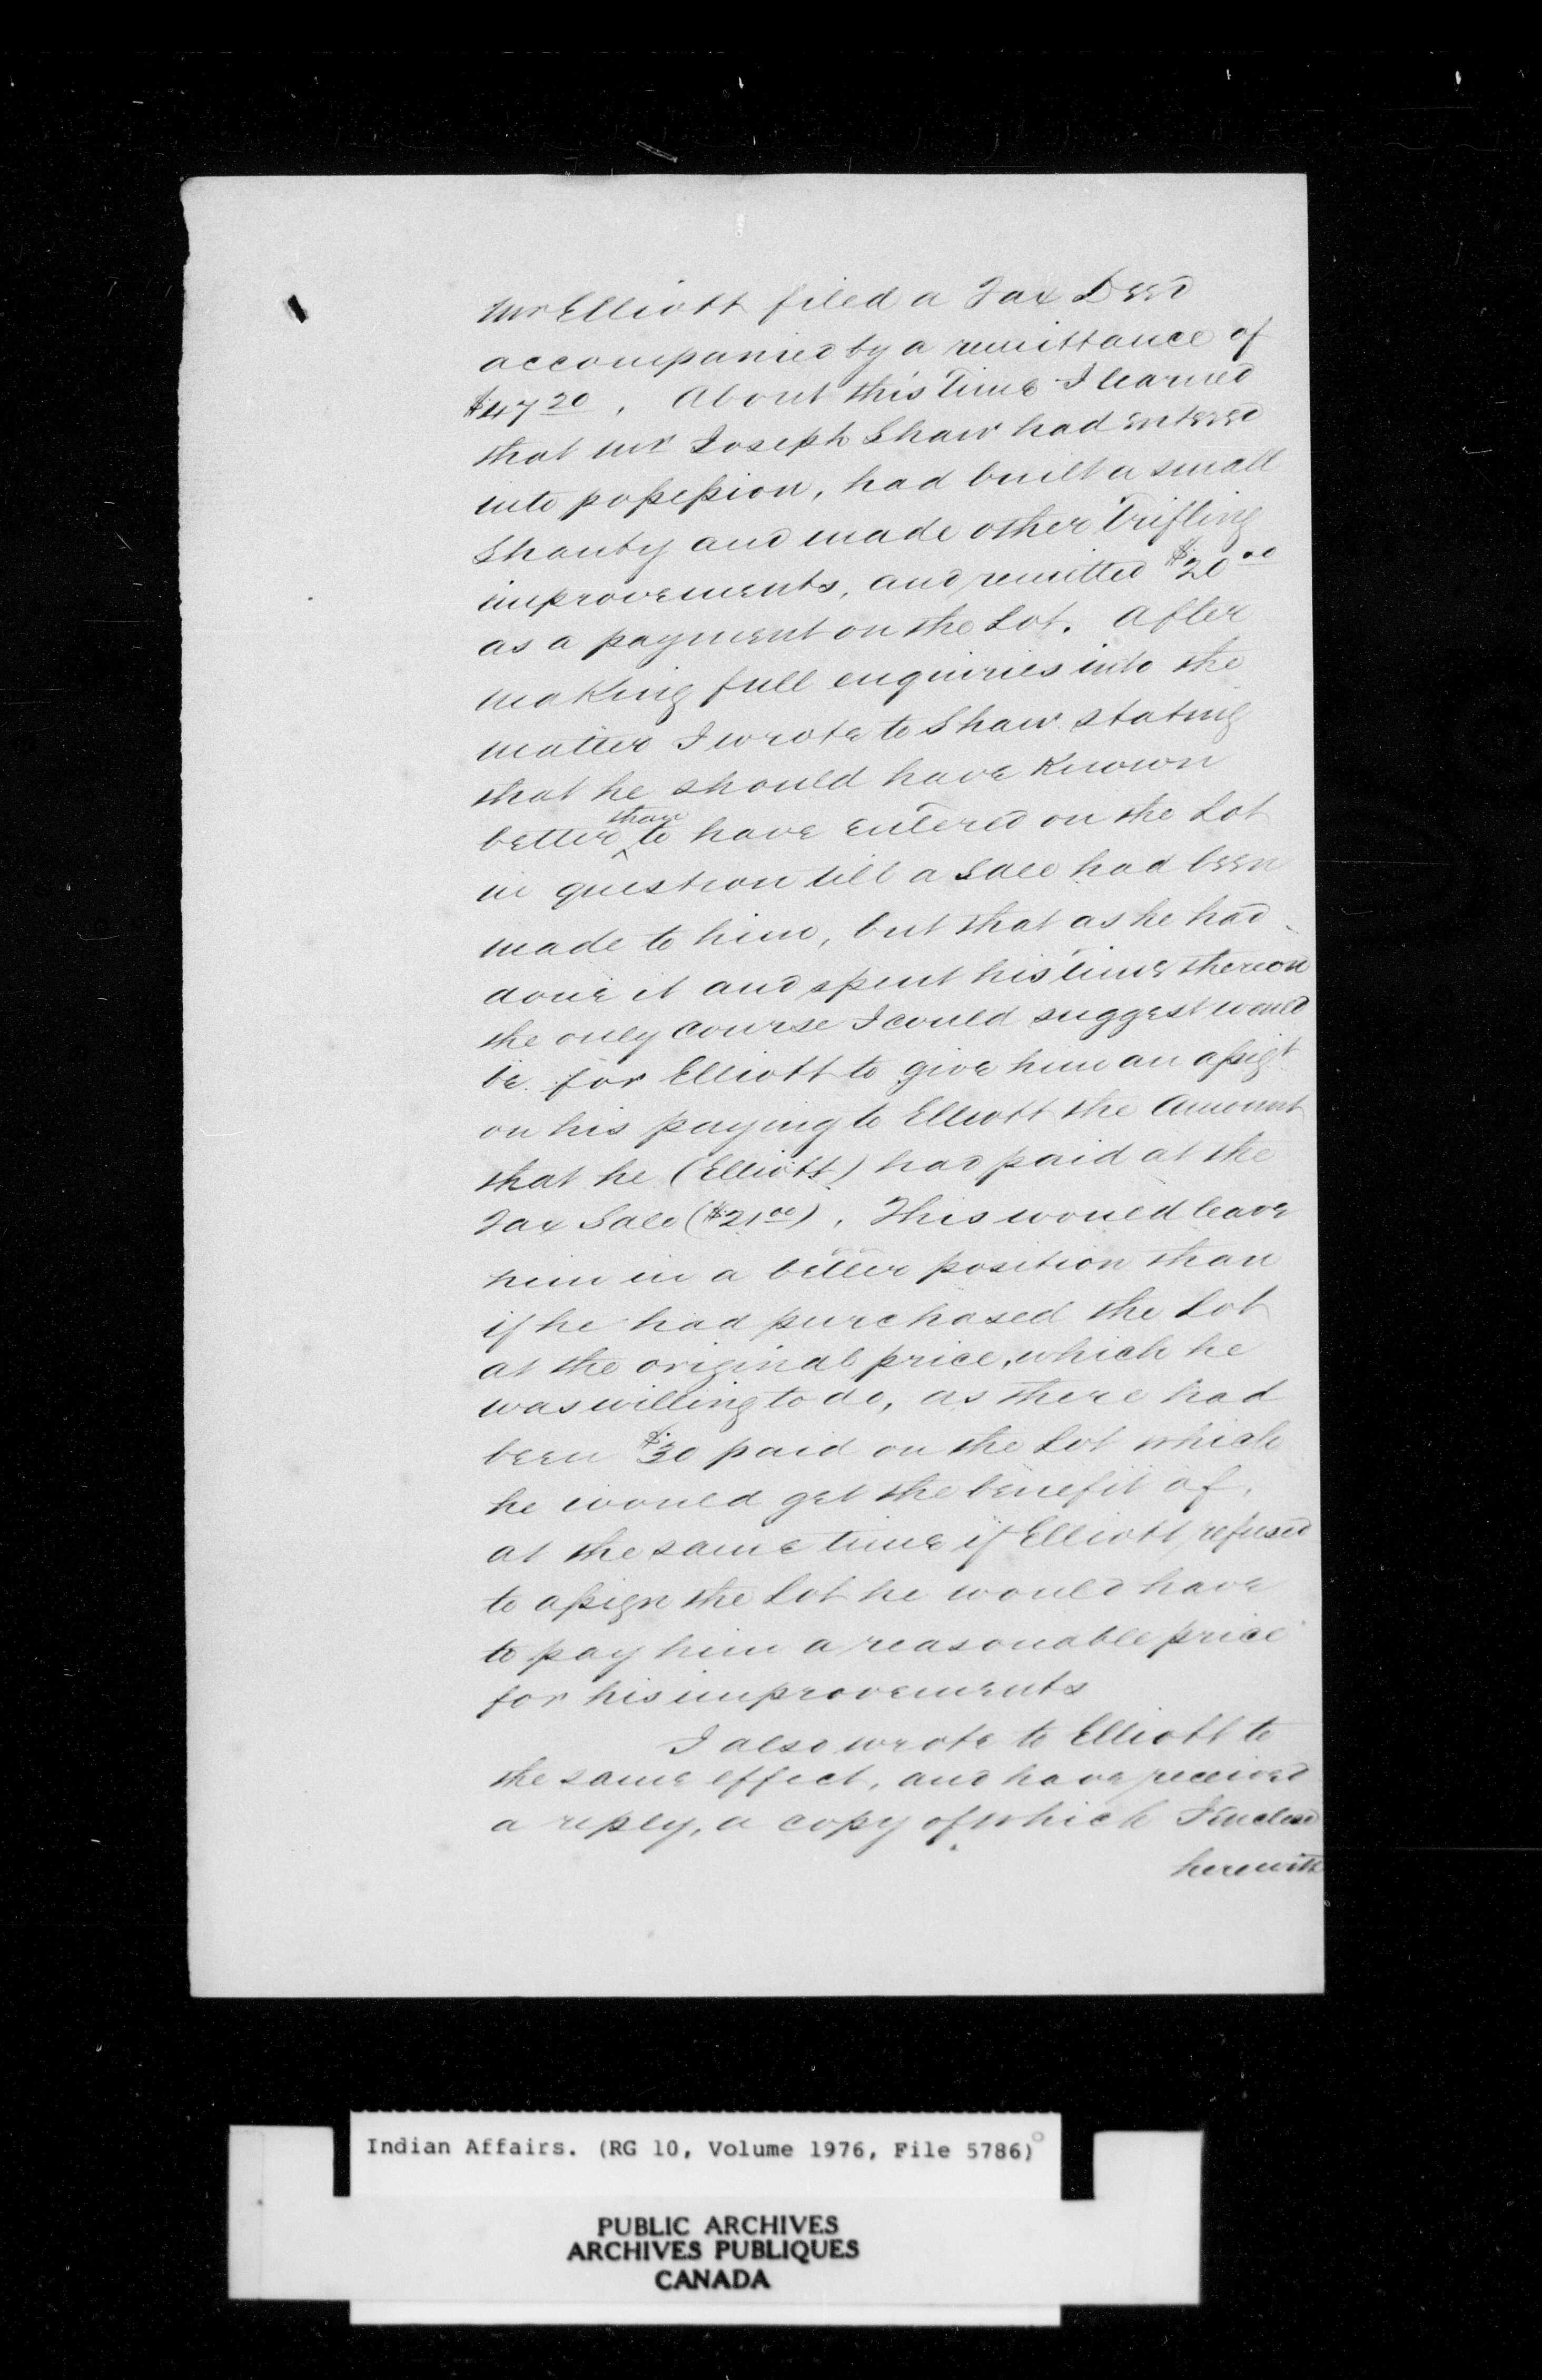 Mr Elliott filed a Tax Deed
accompanied by a remittance of
$47 20. About this time I learned
that Mr Joseph Shaw had entered
into possession, had built a small
Shanty and made other trifling
improvements, and remitted $20 00
as a payment on the Lot. After
making full enquiries into the
matter I wrote to Shaw stating
that he should have known
better than to have entered on the Lot
in question till a Sale had been
made to him, but that as he had
done it and spent his time thereon
the only course I could suggest would
be for Elliott to give him an assigt
on his paying to Elliott the Amount
that he (Elliott) had paid at the
Tax Sale ($21 00). This would leave
him in a better position than
if he had purchased the Lot
at the original price, which he
was willing to do, as there had
been $30 paid on the Lot which
he would get the benefit of,
at the same time if Elliott refused
to assign the Lot he would have
to pay him a reasonable price
for his improvements
I also wrote to Elliott to
the same effect, and have received
a reply, a copy of which I enclose
herewith
Indian Affairs. (RG 10, Volume 1976, File 5786)
PUBLIC ARCHIVES
ARCHIVES PUBLIQUES
CANADA